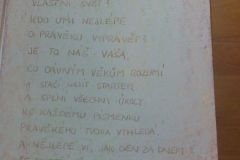 VLASTNÍ SVĚT?
KDO UMÍ NEJLÉPE
O PRAVĚKU VYPRÁVĚT?
JE TO NAŠE VÁŠA,
CO DÁVNÝM VĚKŮM ROZUMÍ
A STAČÍ
A SPLNÍ VŠECHNY ÚKOLY
KE KAŽDÉMU PÍSMENKU
PRAVĚKÉHO TVORA VYHLEDÁ
A NEJLÉPE VÍ, JAK DEN ZA DNEM